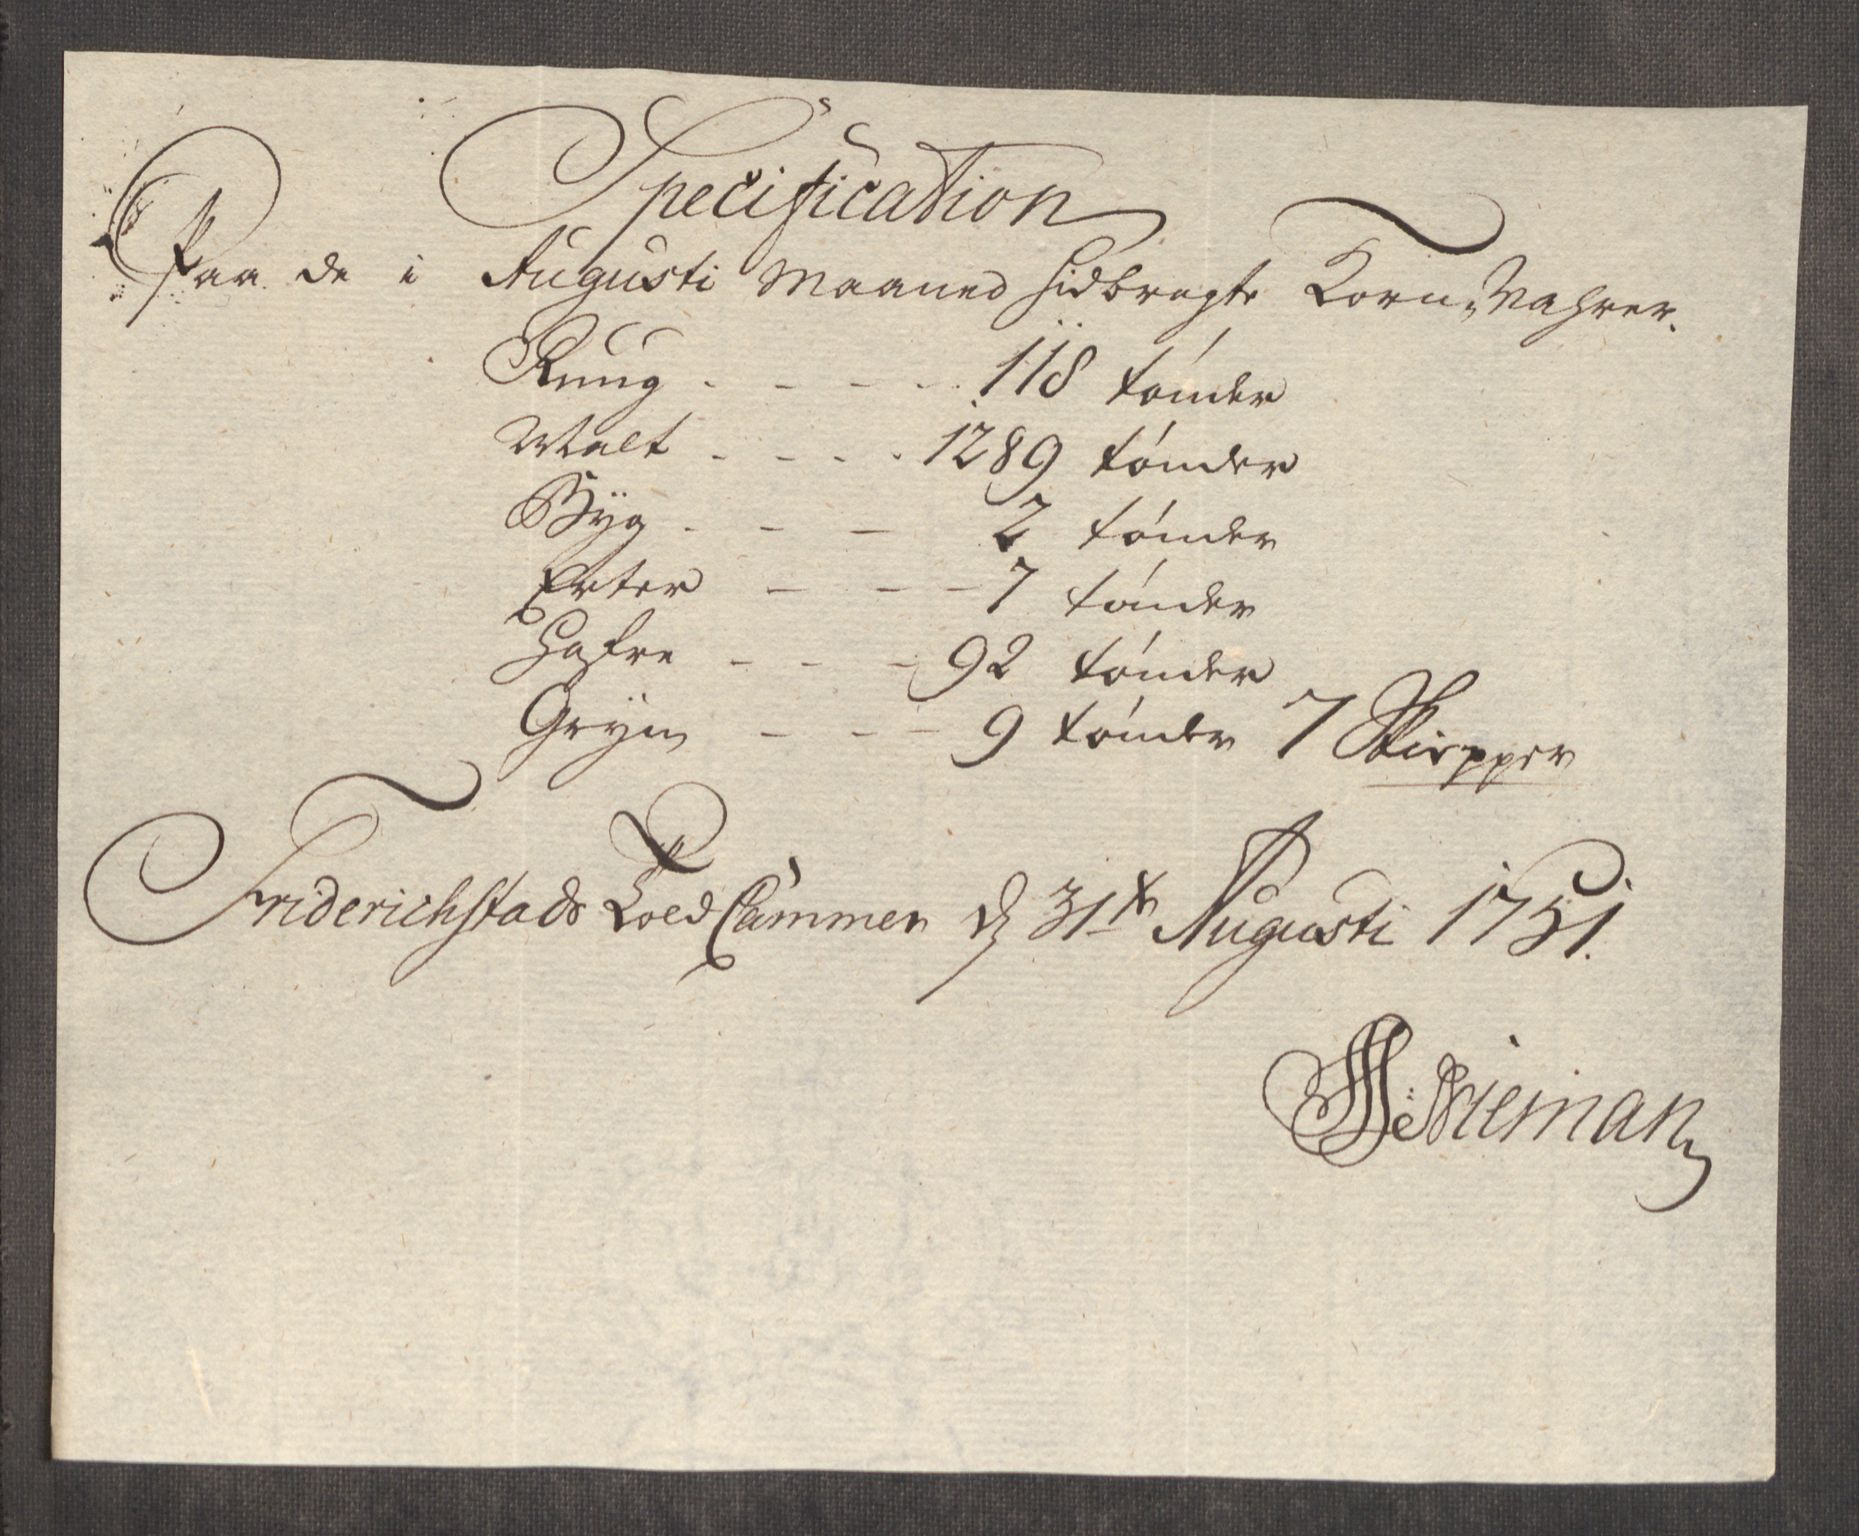 Specification
Paa de i Augusti Maaned hidbragte Korn-Vahrer.
Rug - - - - 118 tønder
Malt - - - - 1289 tønder
Byg - - - 2 tønder
Erter - - - 7 tønder
Hafre - - - 92 tønder
Gryn - - - 9 tønder 7 Skiepper
Friderichstads Told Cammer d 31te Augusti 1751.
Nieman